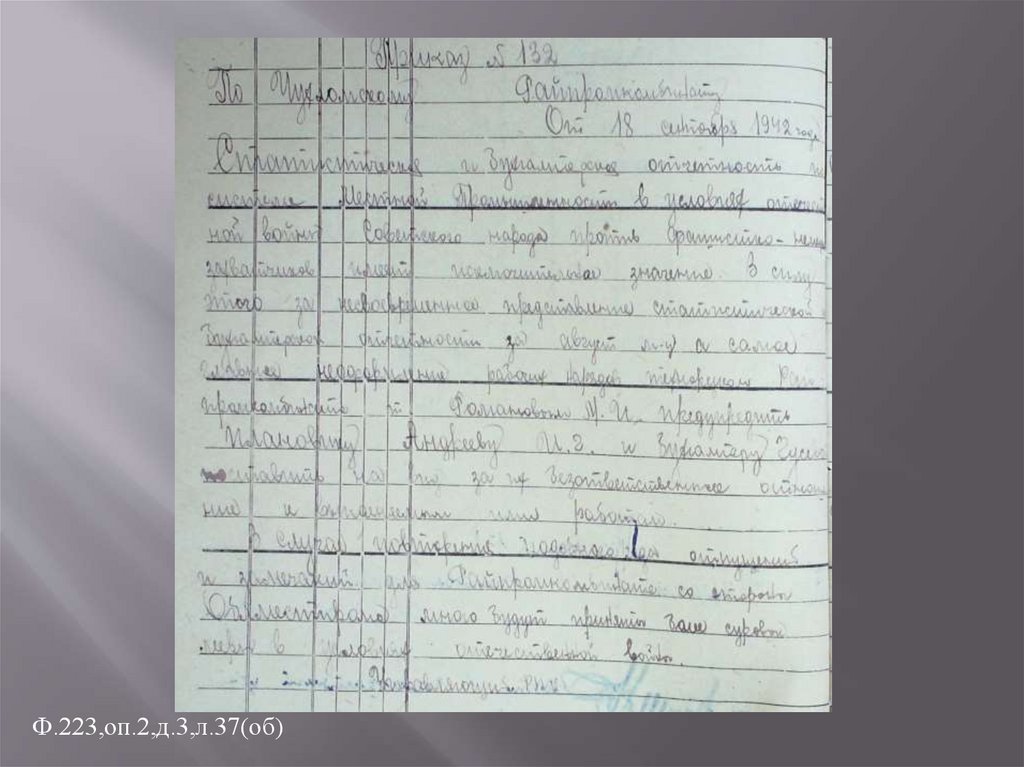 Приказ № 132
По Чухломскому Райпромкомбинату
От 18 сентября 1942 года
Статистическая и Бухгалтерская отчетность в
системе Местной Промышленности в условиях отечест
ной войны Советского народа против Фашистко-немец
захватчиков имеет исключительное значение. В силу
этого за несвоевременное представление статистической
Бухгалтерской отчетности за август м-ц а самое
главное недооформление рабочих нарядов
промкомбината т Романовым М. И. предупредить
Плановику Андрееву И. З. и Бухгалтеру Гусева
поставить на вид за их Безответственное отноше
ние к работаю.
В случаи повторение подобного рода отпущений
и замечаний Райпромкомбинате со стороны
Облместпрома мною Будут приняты Более суровые
меры в условиях отечественной войны.
Управляющий РПК
Ф.223,оп.2,д.3,л.37(об)